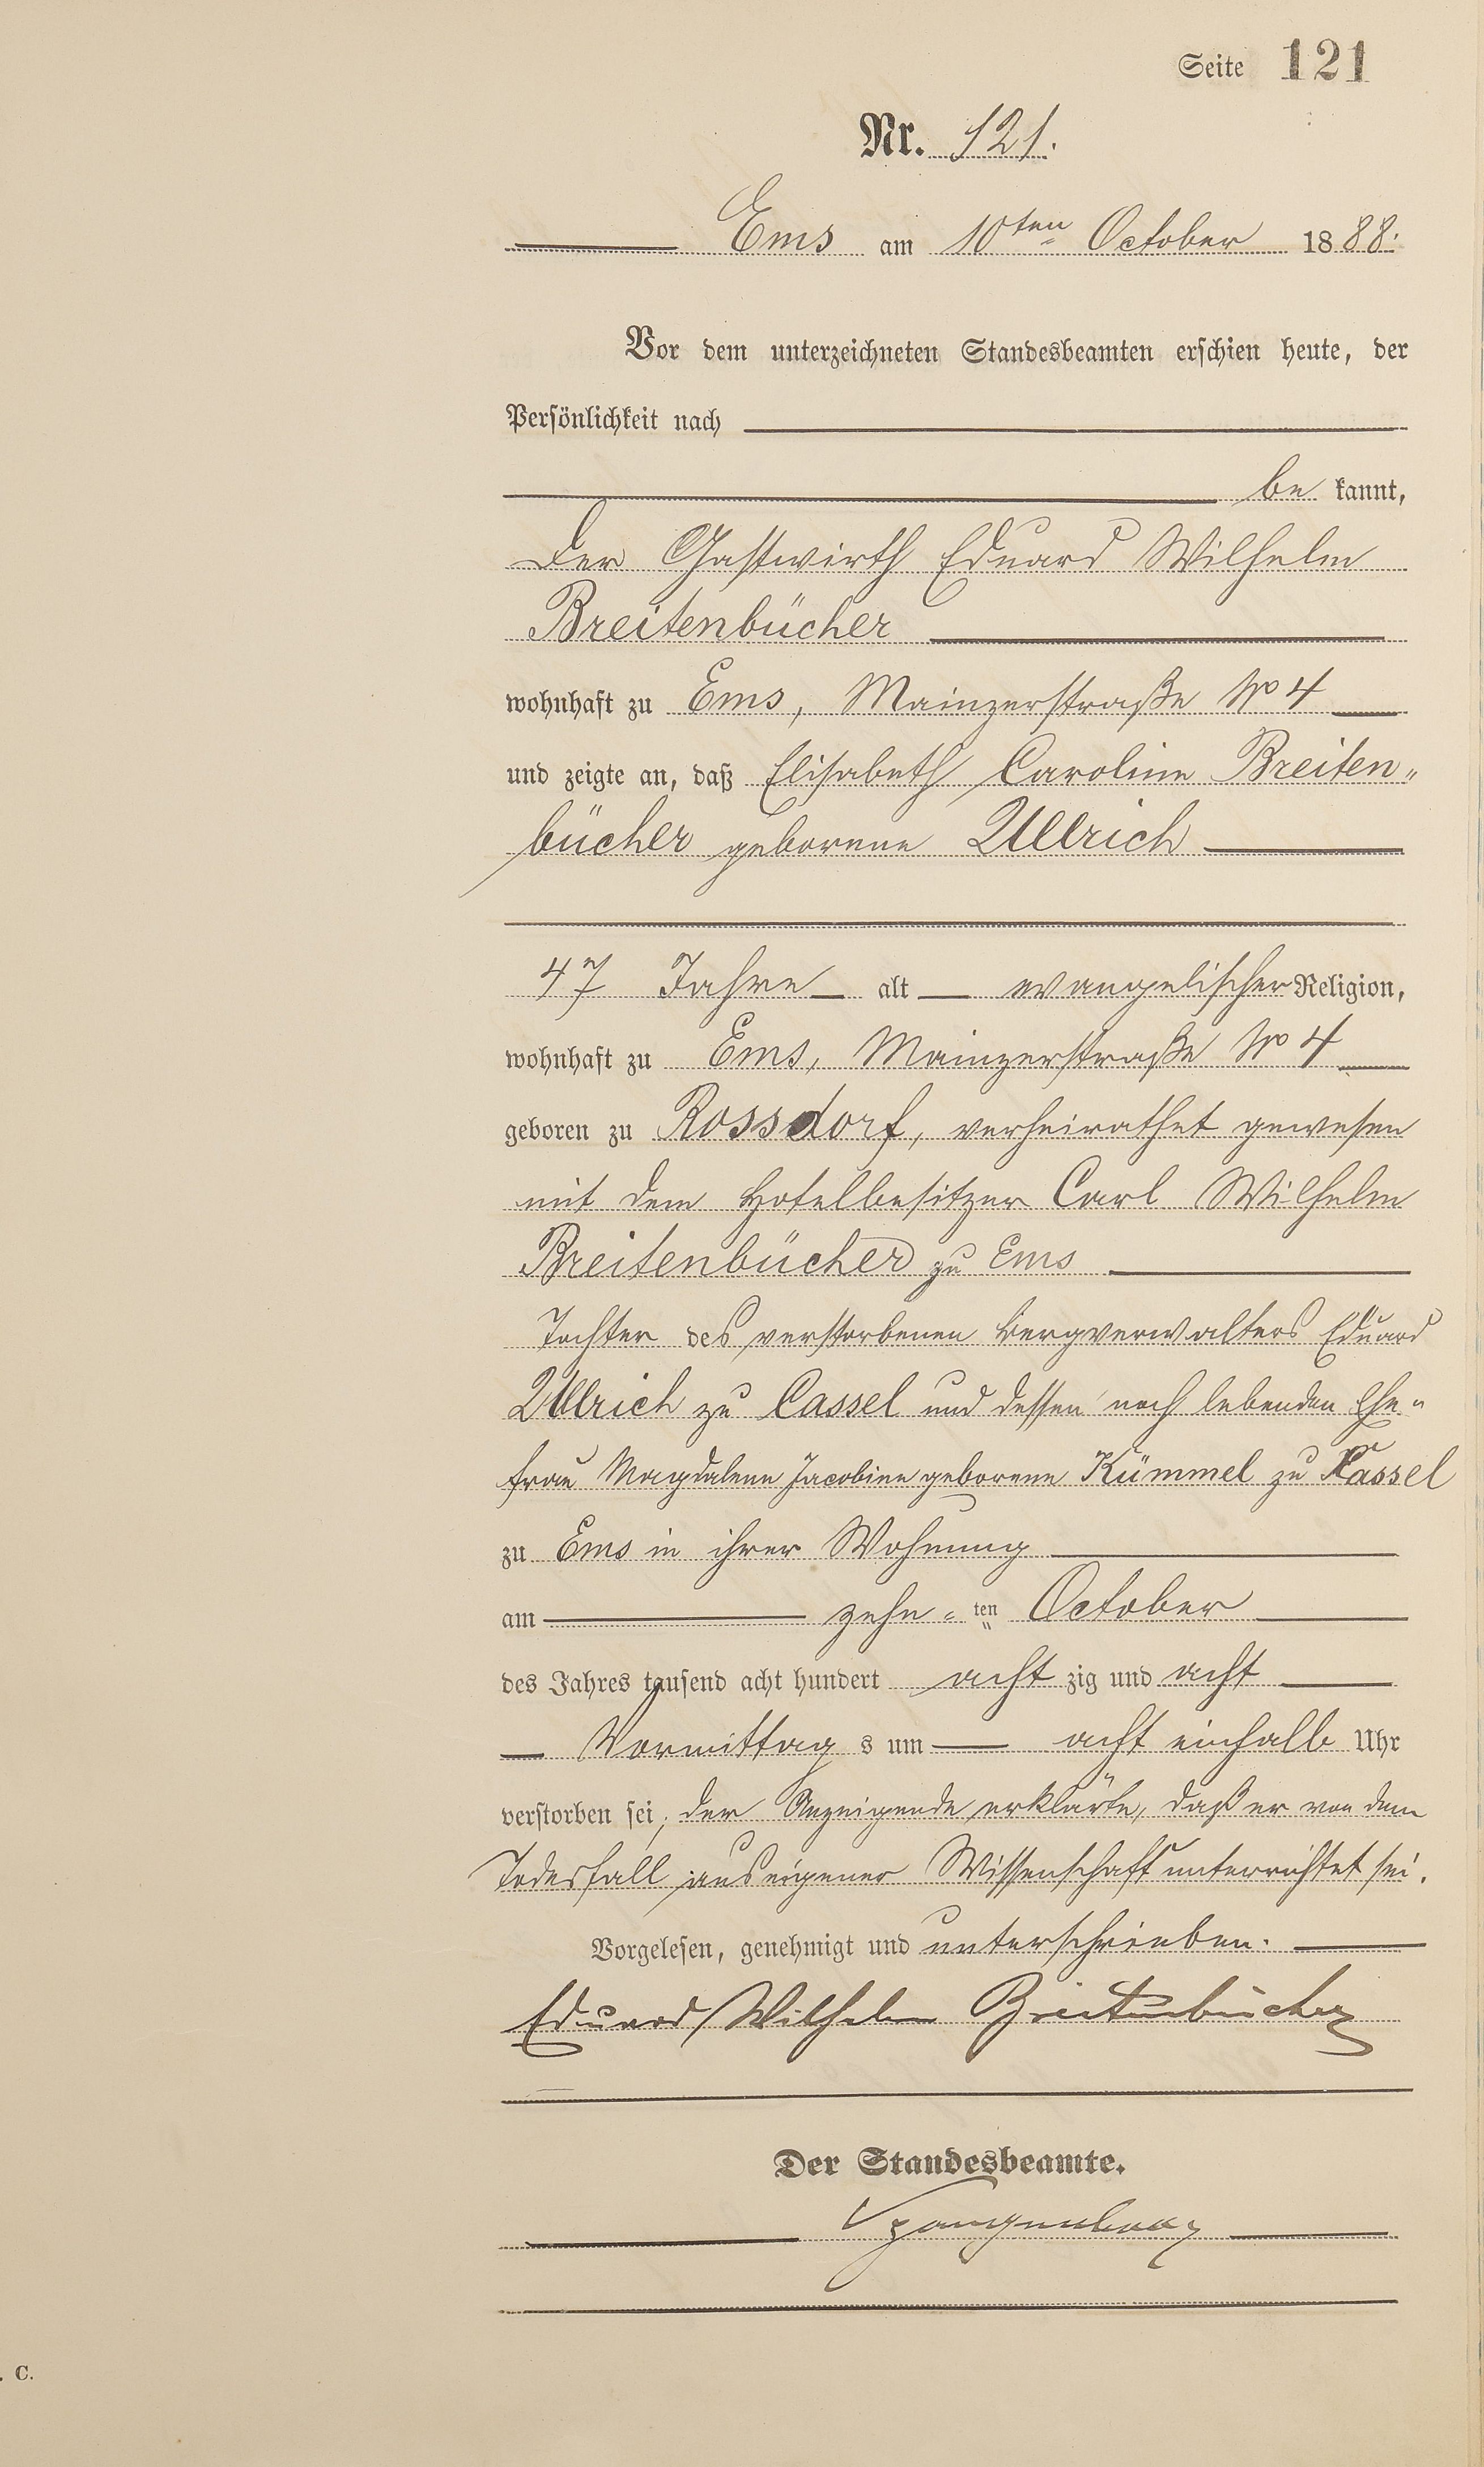 Seite 121
Nr. 121.
Ems am 10ten October 1888.
Vor dem unterzeichneten Standesbeamten erschien heute, der
Persönlichkeit nach
bekannt,
der Gastwirth Eduard Wilhelm
Breitenbücher
wohnhaft zu Ems, Mainzerstraße No 4
und zeigte an, daß Elisabeth Caroline Breiten„
bücher geborene Ullrich
47 Jahre alt evangelischer Religion,
wohnhaft zu Ems, Mainzerstraße No 4
geboren zu Rossdorf, verheirathet gewesen
mit dem Hotelbesitzer Carl Wilhelm
Breitenbücher zu Ems
Tochter des verstorbenen Bergverwalters Eduard
Ullrich zu Cassel und dessen noch lebenden Ehe„
frau Magdalene Jacobine geborene Kümmel zu Kassel
zu Ems in ihrer Wohnung
am zehn-ten October
des Jahres tausend acht hundert achtzig und acht
Vormittags um acht einhalb Uhr
verstorben sei, der Anzeigende erklärte, daß er von dem
Todesfall aus eigener Wissenschaft unterrichtet sei.
Vorgelesen, genehmigt und unterschrieben.
Eduard Wilhelm Breitenbücher
Der Standesbeamte.
C.